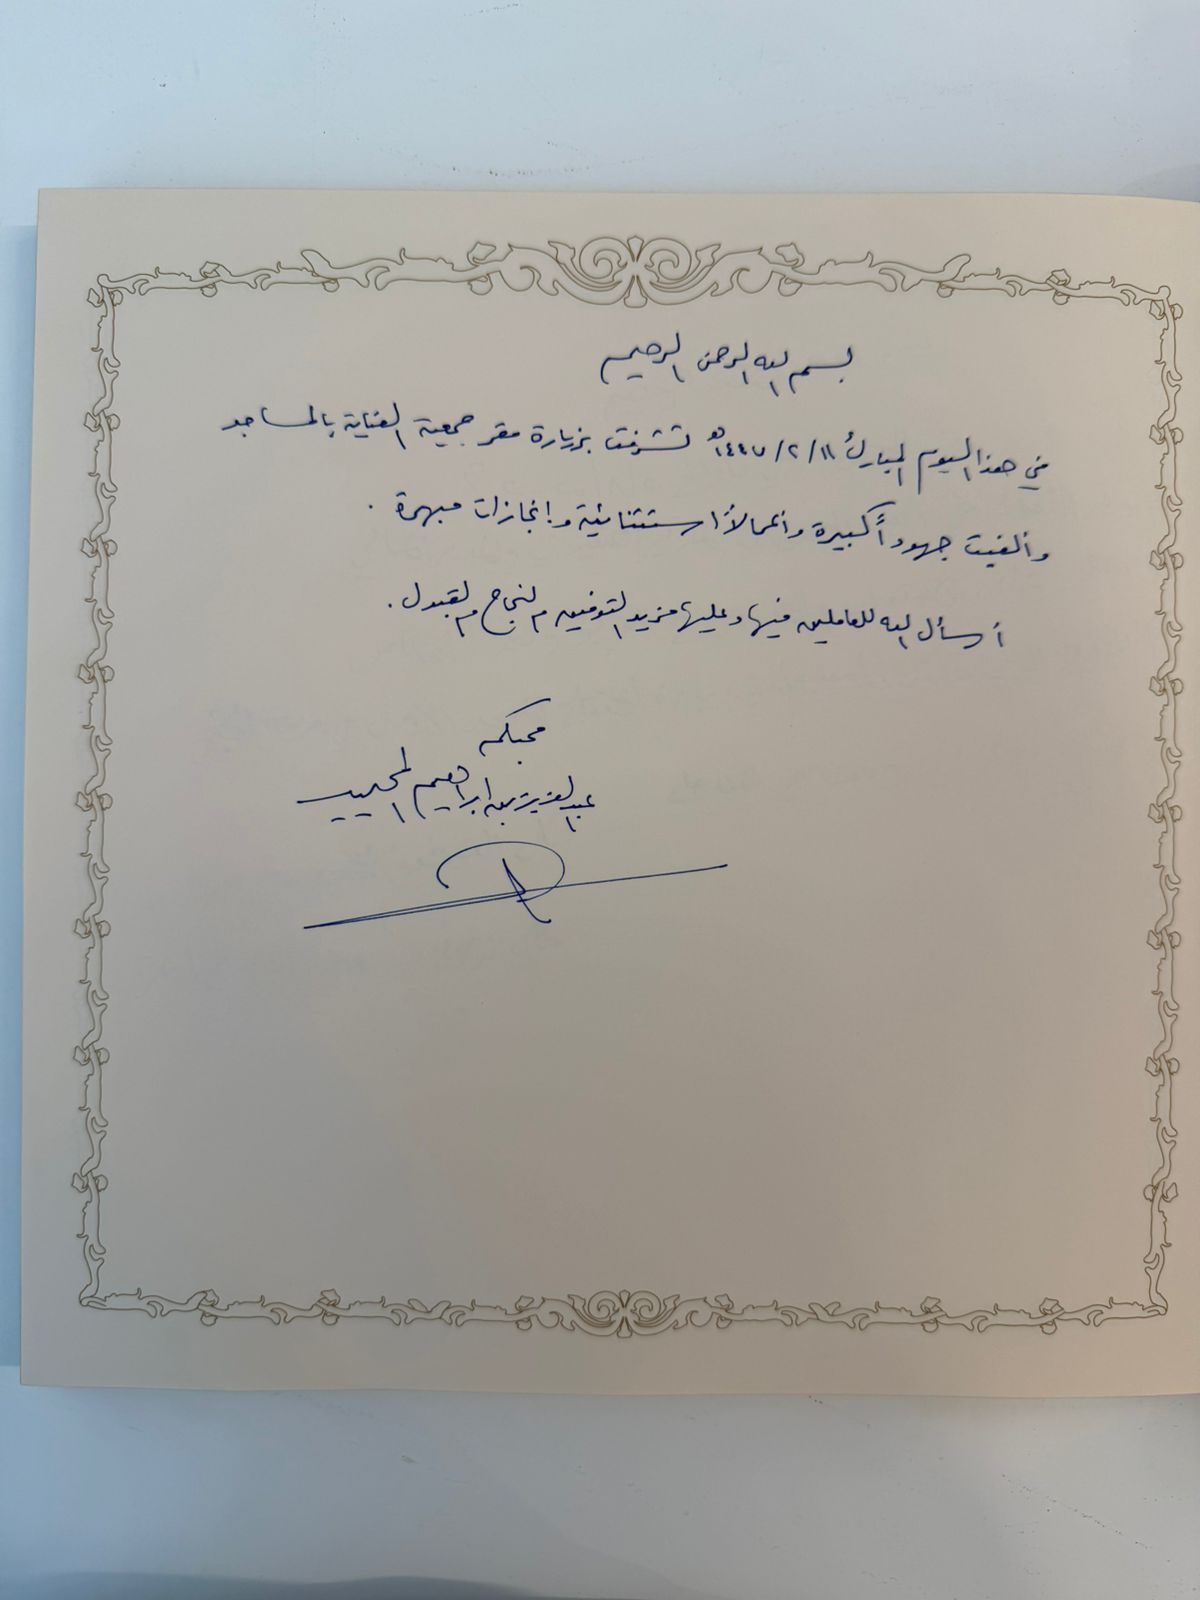 بسم الله الرحمن الرحيم
في هذا اليوم المبارك ١١/٢/١٤٤٧هـ تشرفت بزيارة مقر جمعية العناية بالمساجد
وألفيت جهوداً كبيرة وأعمالاً استثنائية وإنجازات مبهرة.
أسأل الله للعاملين فيها وعليها مزيد التوفيق والنجاح والقبول.
محبكم
عبدالعزيز بن ابراهيم